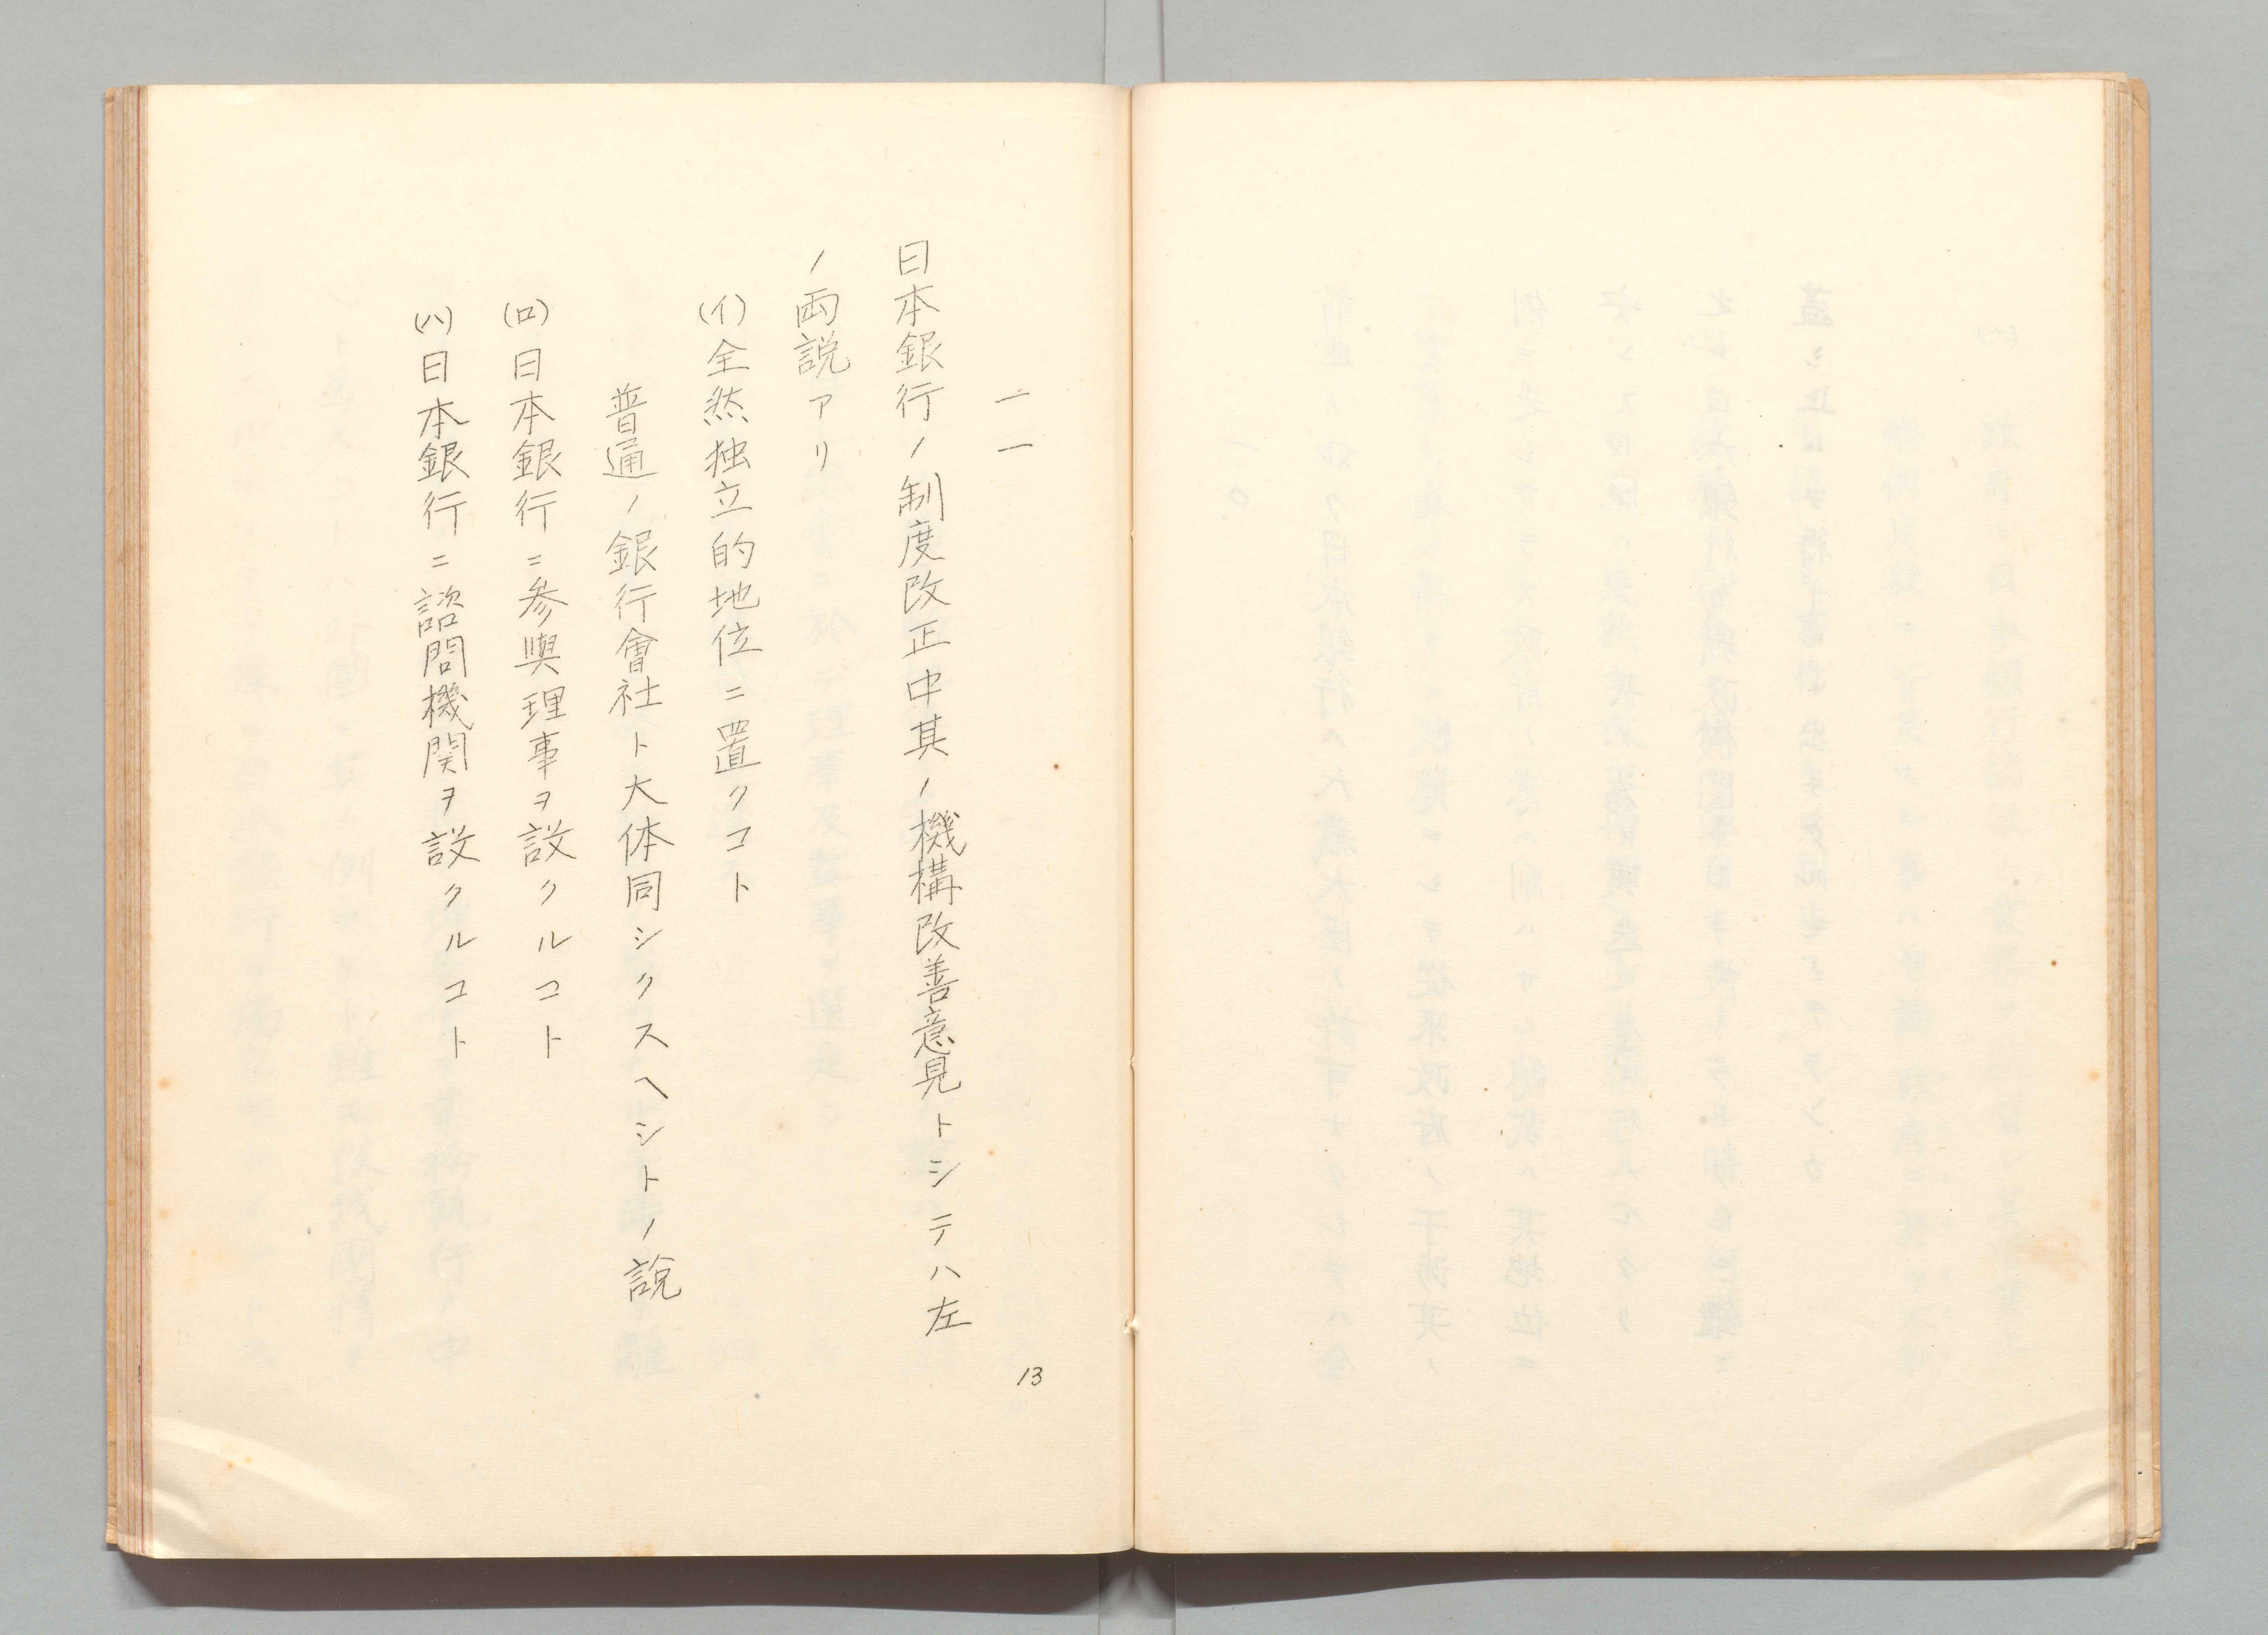 一一
日本銀行ノ制度改正中其ノ機構改善意見トシテハ左
ノ両説アリ
(イ)全然独立的地位ニ置クコト
普通ノ銀行會社ト大体同シクスヘシトノ説
(ロ)日本銀行ニ参與理事ヲ設クルコト
(ハ)日本銀行ニ諮問機関ヲ設クルコト
13